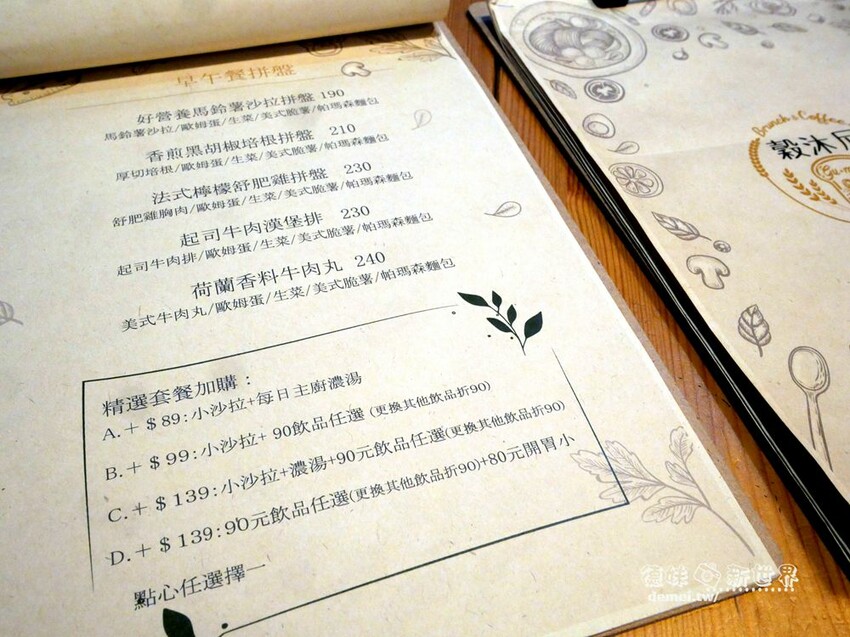 早午餐拼盤
好營養馬鈴薯沙拉拼盤 190
馬鈴薯沙拉/歐姆蛋/生菜/美式脆薯/帕瑪森麵包
香煎黑胡椒培根拼盤 210
厚切培根/歐姆蛋/生菜/美式脆薯/帕瑪森麵包
法式檸檬舒肥雞拼盤 230
舒肥雞胸肉/歐姆蛋/生菜/美式脆薯/帕瑪森麵包
起司牛肉漢堡排 230
起司牛肉排/歐姆蛋/生菜/美式脆薯/帕瑪森麵包
荷蘭香料牛肉丸 240
美式牛肉丸/歐姆蛋/生菜/美式脆薯/帕瑪森麵包
精選套餐加購：
A.＋＄89:小沙拉+每日主廚濃湯
B.＋＄99:小沙拉+ 90飲品任選 (更換其他飲品折90)
C.＋＄139:小沙拉+濃湯+90元飲品任選(更換其他飲品折90)
D.＋＄139:90元飲品任選(更換其他飲品折90)+80元開胃小
點心任選擇一
Brunch & Coffee
穀沐
新世界
demei.tw/